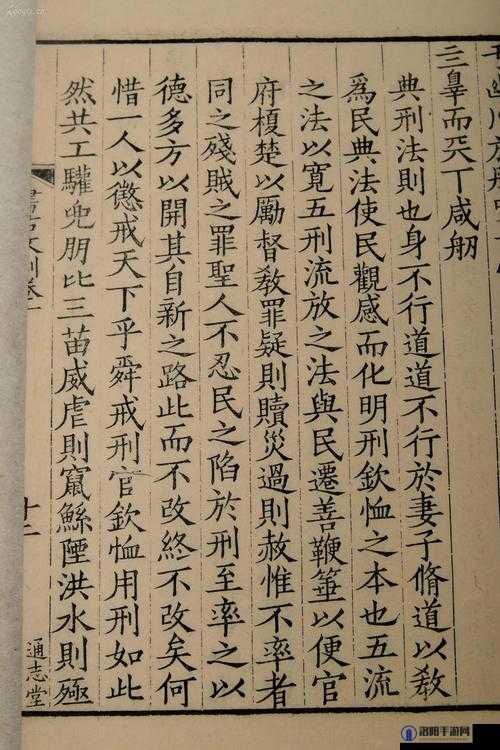 辠而丅咸
典刑法則也身不行道道不行於妻子脩道以敎
爲民典法使民觀感而化明刑欽恤之本也五流
之法以寬五刑流放之法與民遷善鞭箠以便官
府榎楚以勵督敎罪疑則贖災過則赦惟不率者
同之殘賊之罪聖人不忍民之陷於刑至率之以
德多方以開其自新之路此而不改終不改矣何
惜一人以懲戒天下乎舜戒刑官欽恤用刑如此
然共工驩兜朋比三苗威虐則竄鯀陻洪水則殛
書古文訓卷一
十二
通志堂
洛阳手游网